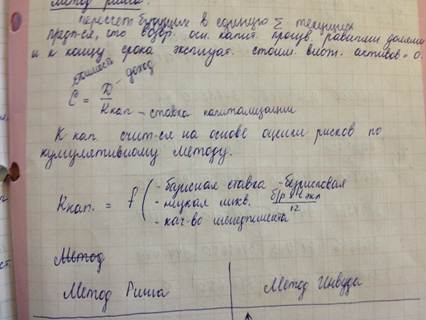 Метод ринга.
пересчет будущих в единую Σ текущих
предп-ся, что возвр. осн. капит. произв. равными долями
и к концу срока эксплуат. стоим. внеш. активов = 0.
стоимость
C = Д/Rкап
- доход
- ставка капитализации
К кап. счит-ся на основе оценки рисков по
кумулятивному методу.
Rкап. = f ( - базисная ставка - безрисковая
- низкая ликв. б/р × 
12
- кач-во менеджмента
Метод
Метод Ринга Метод Инвуда